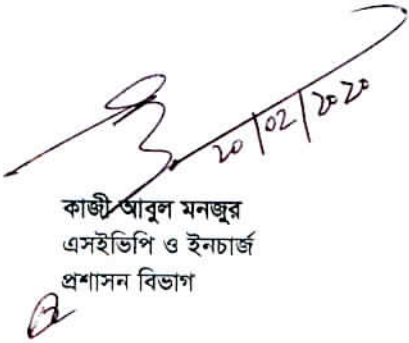 20/02/2020
কাজী আবুল মনজুর
এসইভিপি ও ইনচার্জ
প্রশাসন বিভাগ